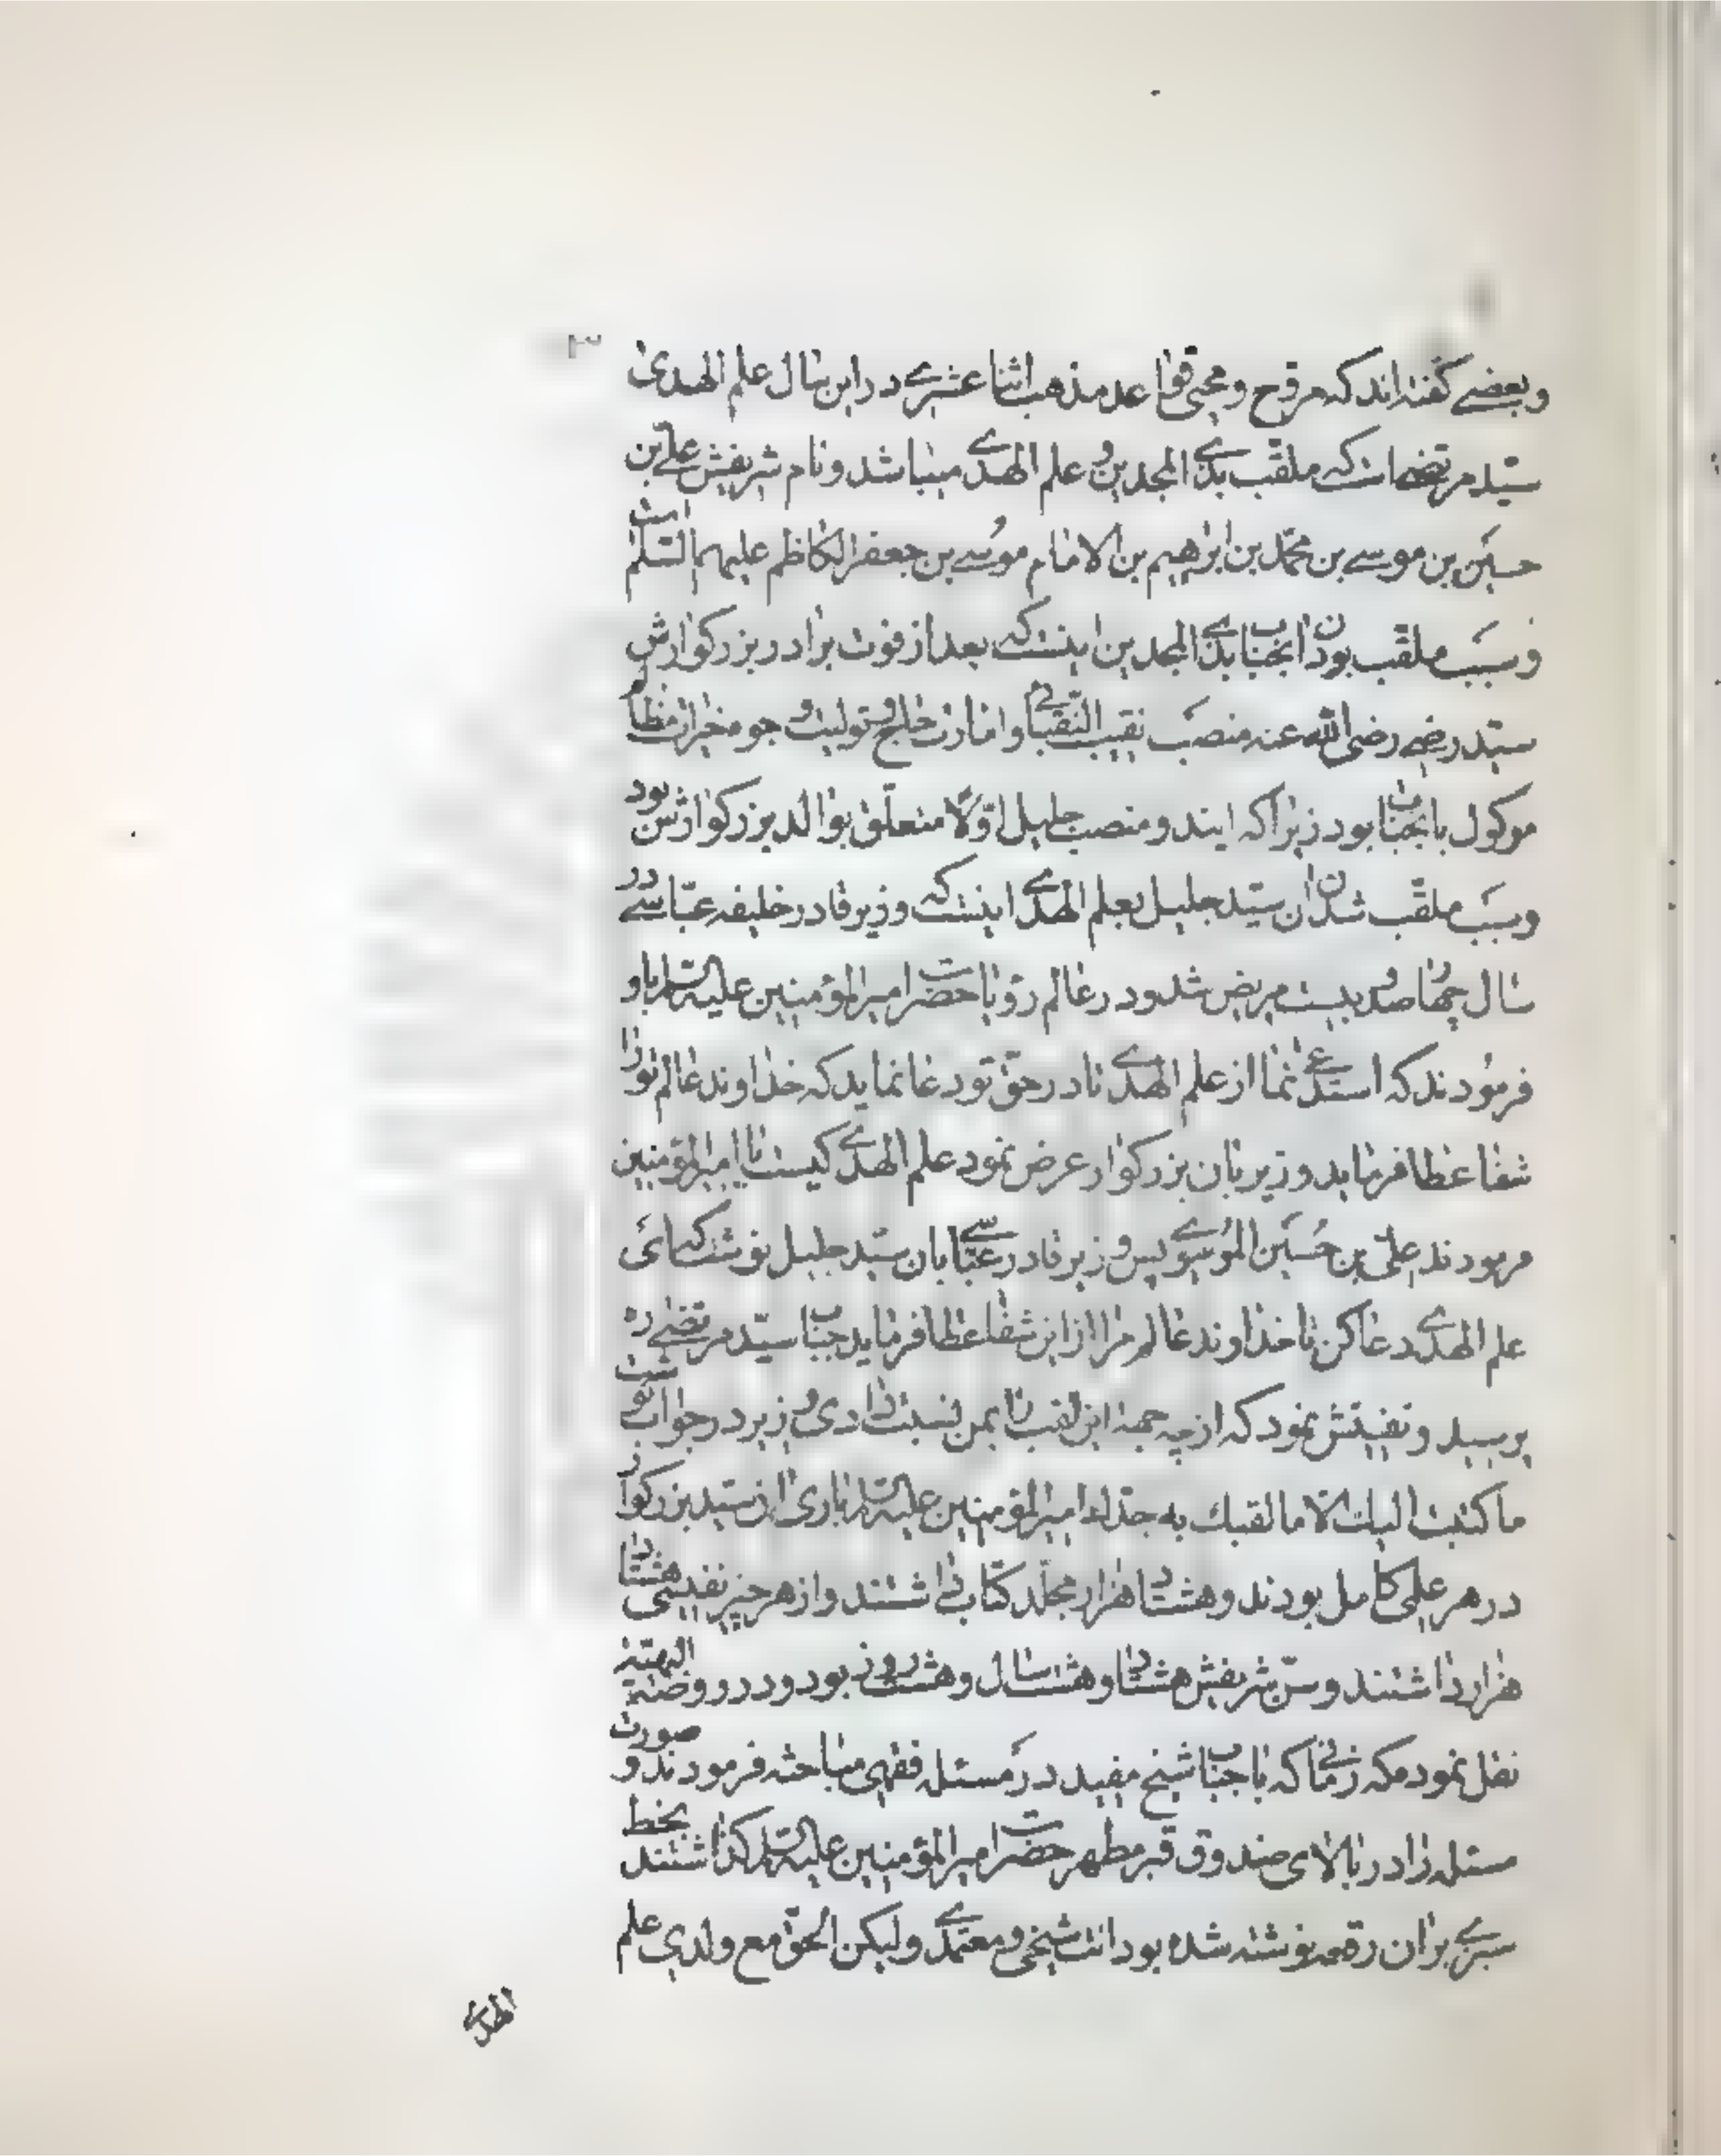 ۳
وبعضے گفته‌اند که مروّج و محیی قواعد مذهب اثنا عشرے در این سال علم الهدیٰ
سیّد مرتضے است که ملقّب بذے المجدین و علم الهدے میباشد و نام شریفش علے بن
حسین بن موسے بن محمّد بن ابرٰهیم بن الامام موسے بن جعفر الکاظم علیهما السّلم است
و سبب ملقّب بودن انجناب بذے المجدین اینست که بعد از فوت برادر بزرکوارش
سیّد رضے رضی الله عنه منصب نقیب النّقبائے و امارت حاج و تولیت و جو مخبران مظالم
موکول بانجناب بود زیرا که ایندو منصب جلیل اوّلاً متعلّق بوالد بزرکوارش بود
و سبب ملقّب شدن ان سیّد جلیل بعلم الهدے اینست که وزیر قادر خلیفه عبّاسے در
سال چهارصد و بیست مریض شد و در عالم رؤیا حضرت امیر المؤمنین علیه السّلم باو
فرمودند که استدعے نما از علم الهدے تا در حقّ تو دعا نماید که خداوند عالم تو را
شفا عطا فرماید وزیر بان بزرکوار عرض نمود علم الهدے کیست یا امیر المؤمنین
فرمودند علیّ بن حُسَین الموُسوے پس وزیر قادر عبّاسے بان سیّد جلیل نوشت که اے
علم الهدے دعا کن تا خداوند عالم مرا از این شفا عطا فرماید جناب سیّد مرتضے ره
پرسید و تفتیش نمود که از چه جهة این لقب را بمن نسبت دادی وزیر در جواب نوشت
ما کتبت الیک الّا ما لقبک به جدّک امیر المؤمنین علیه السّلم باری ان سیّد بزرکوار
در هر علمی کامل بودند و هشتاد هزار مجلّد کتاب داشتند و از هر چیز نفیسی هشتاد
هزار داشتند و سنّ شریفش هشتاد و هشت سال و هشت روز بود و در روضة البهیّة
نقل نموده که زمانے که با جناب شیخ مفید در مسئله فقهی مباحثه فرمودند و صورت
مسئله را در بالای صندوق قبر مطهر حضرت امیر المؤمنین علیه السّلم کذاشتند بخط
سبزے بران رقعه نوشته شده بود انت شیخی و معتمدے ولیکن الحقّ مع ولدی علم
الهدے